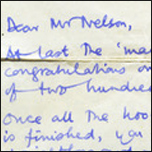 Dear Mr Nelson,
At last The 'ma
congratulations on
of two hundred
Once all the hoo
is finished, you